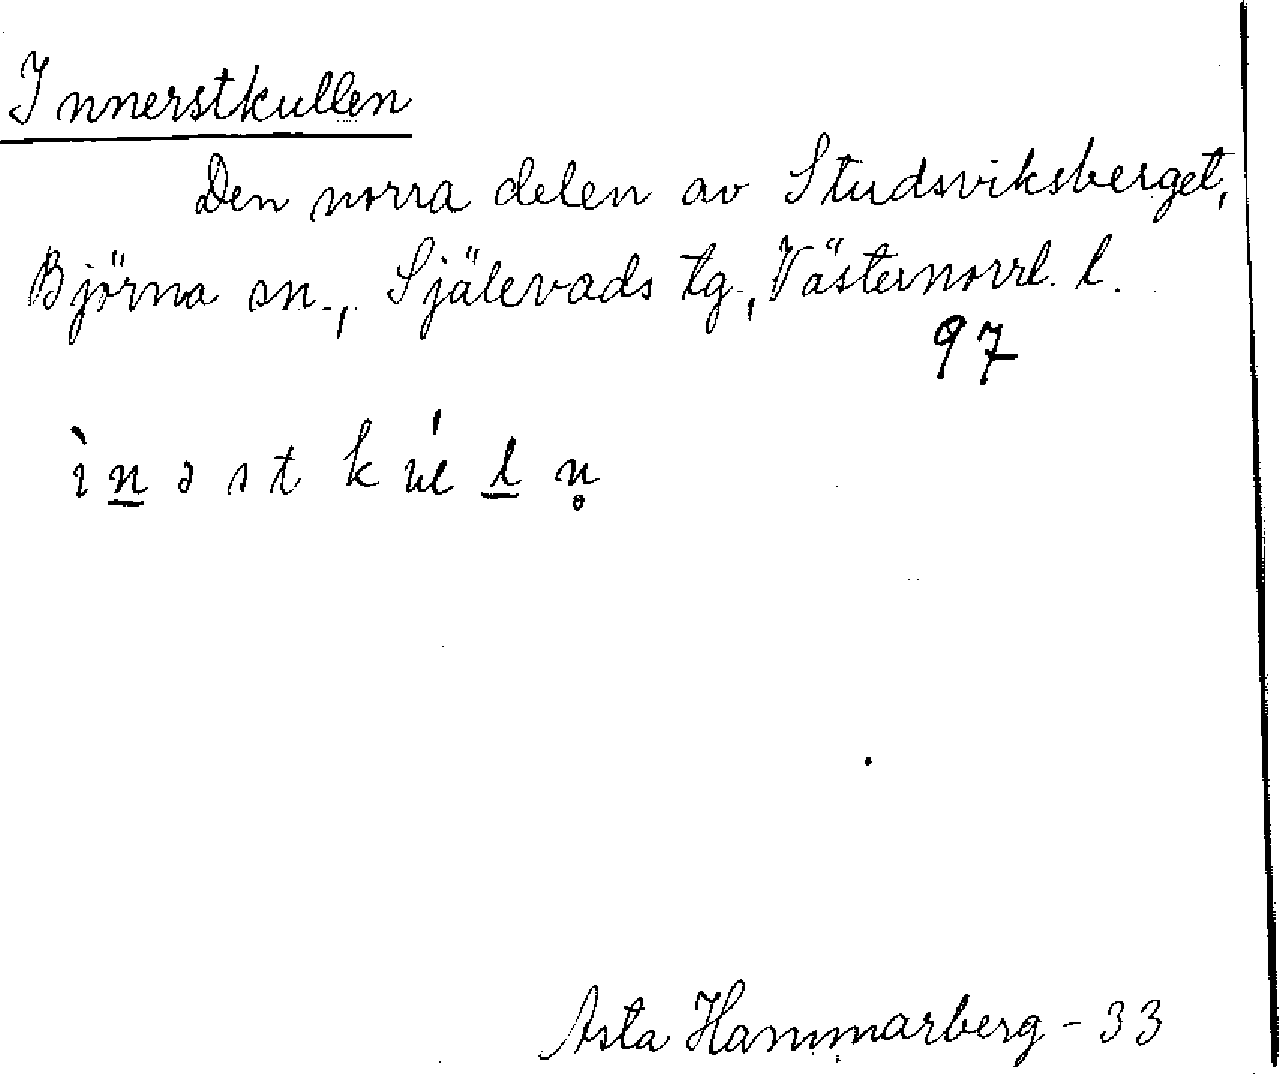 Innerstkullen
Den norra delen av Studsviksberget,
Björna sn., Själevads tg., Västernorrl. l.
97
ìn̲əst kúl̲n̥
Asta Hammarberg - 33